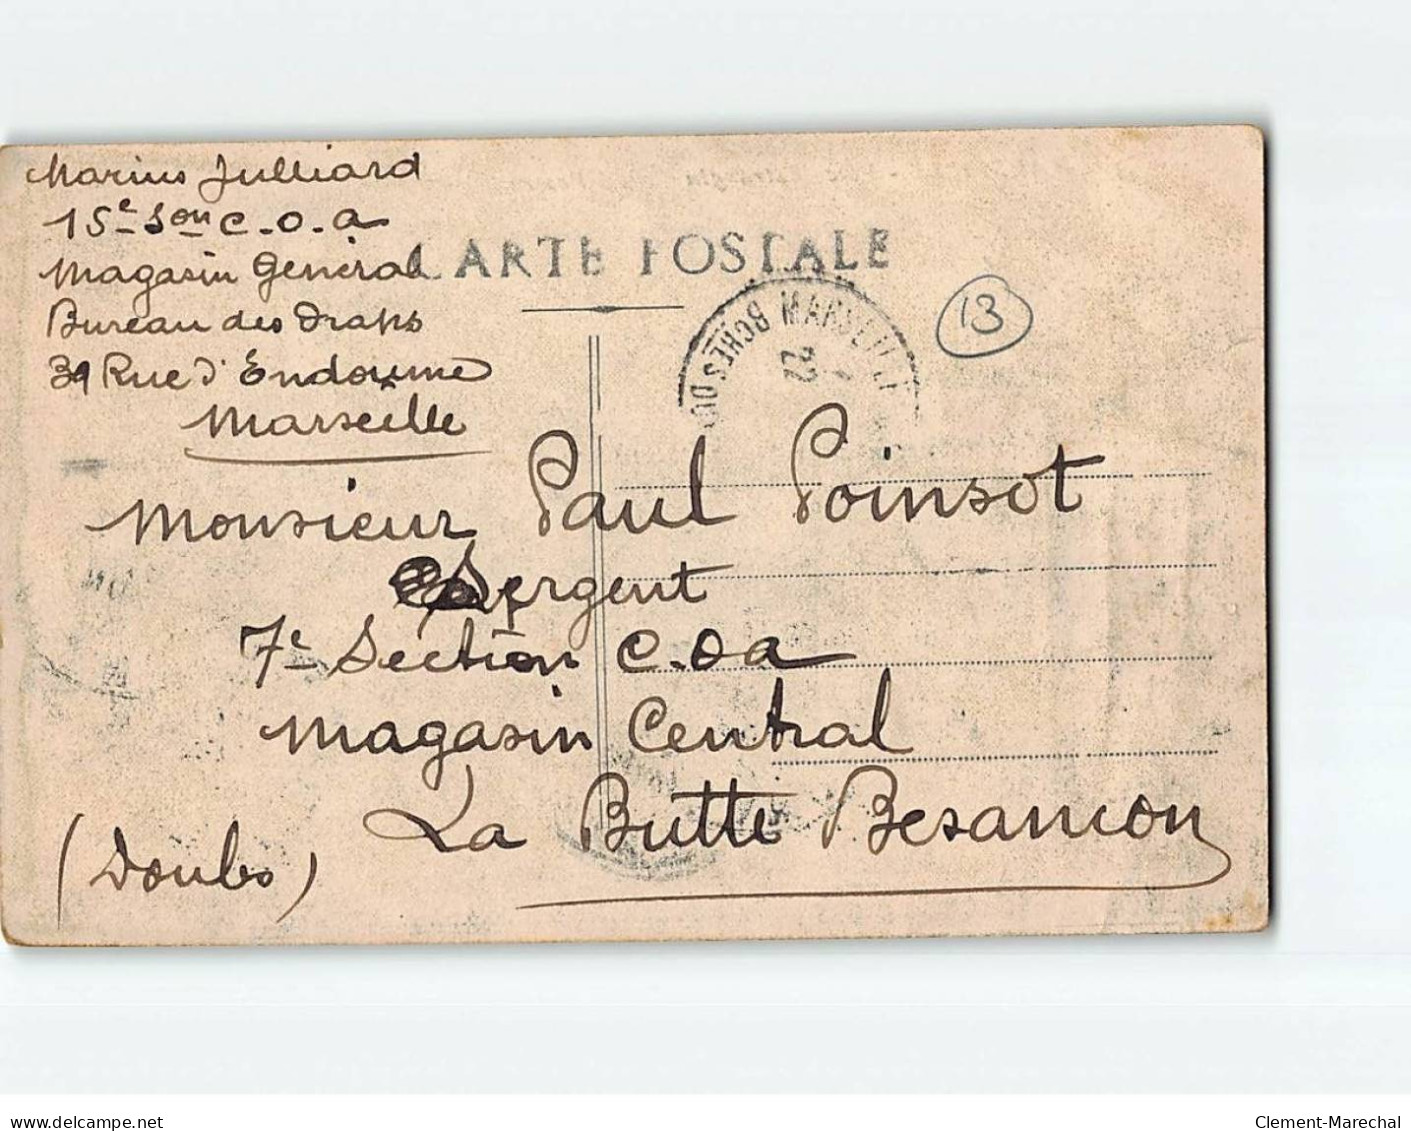 Marius Julliard
15e Son C.O.A
Magasin Général
Bureau des Draps
39 Rue d'Endoume
Marseille
CARTE POSTALE
MARSEILLE
BCHES DU
22
13
Monsieur Paul Poinsot
Sergent
7e Section C.O.A
Magasin Central
La Butte Besancon
(Doubs)
www.delcampe.net
Clement-Marechal